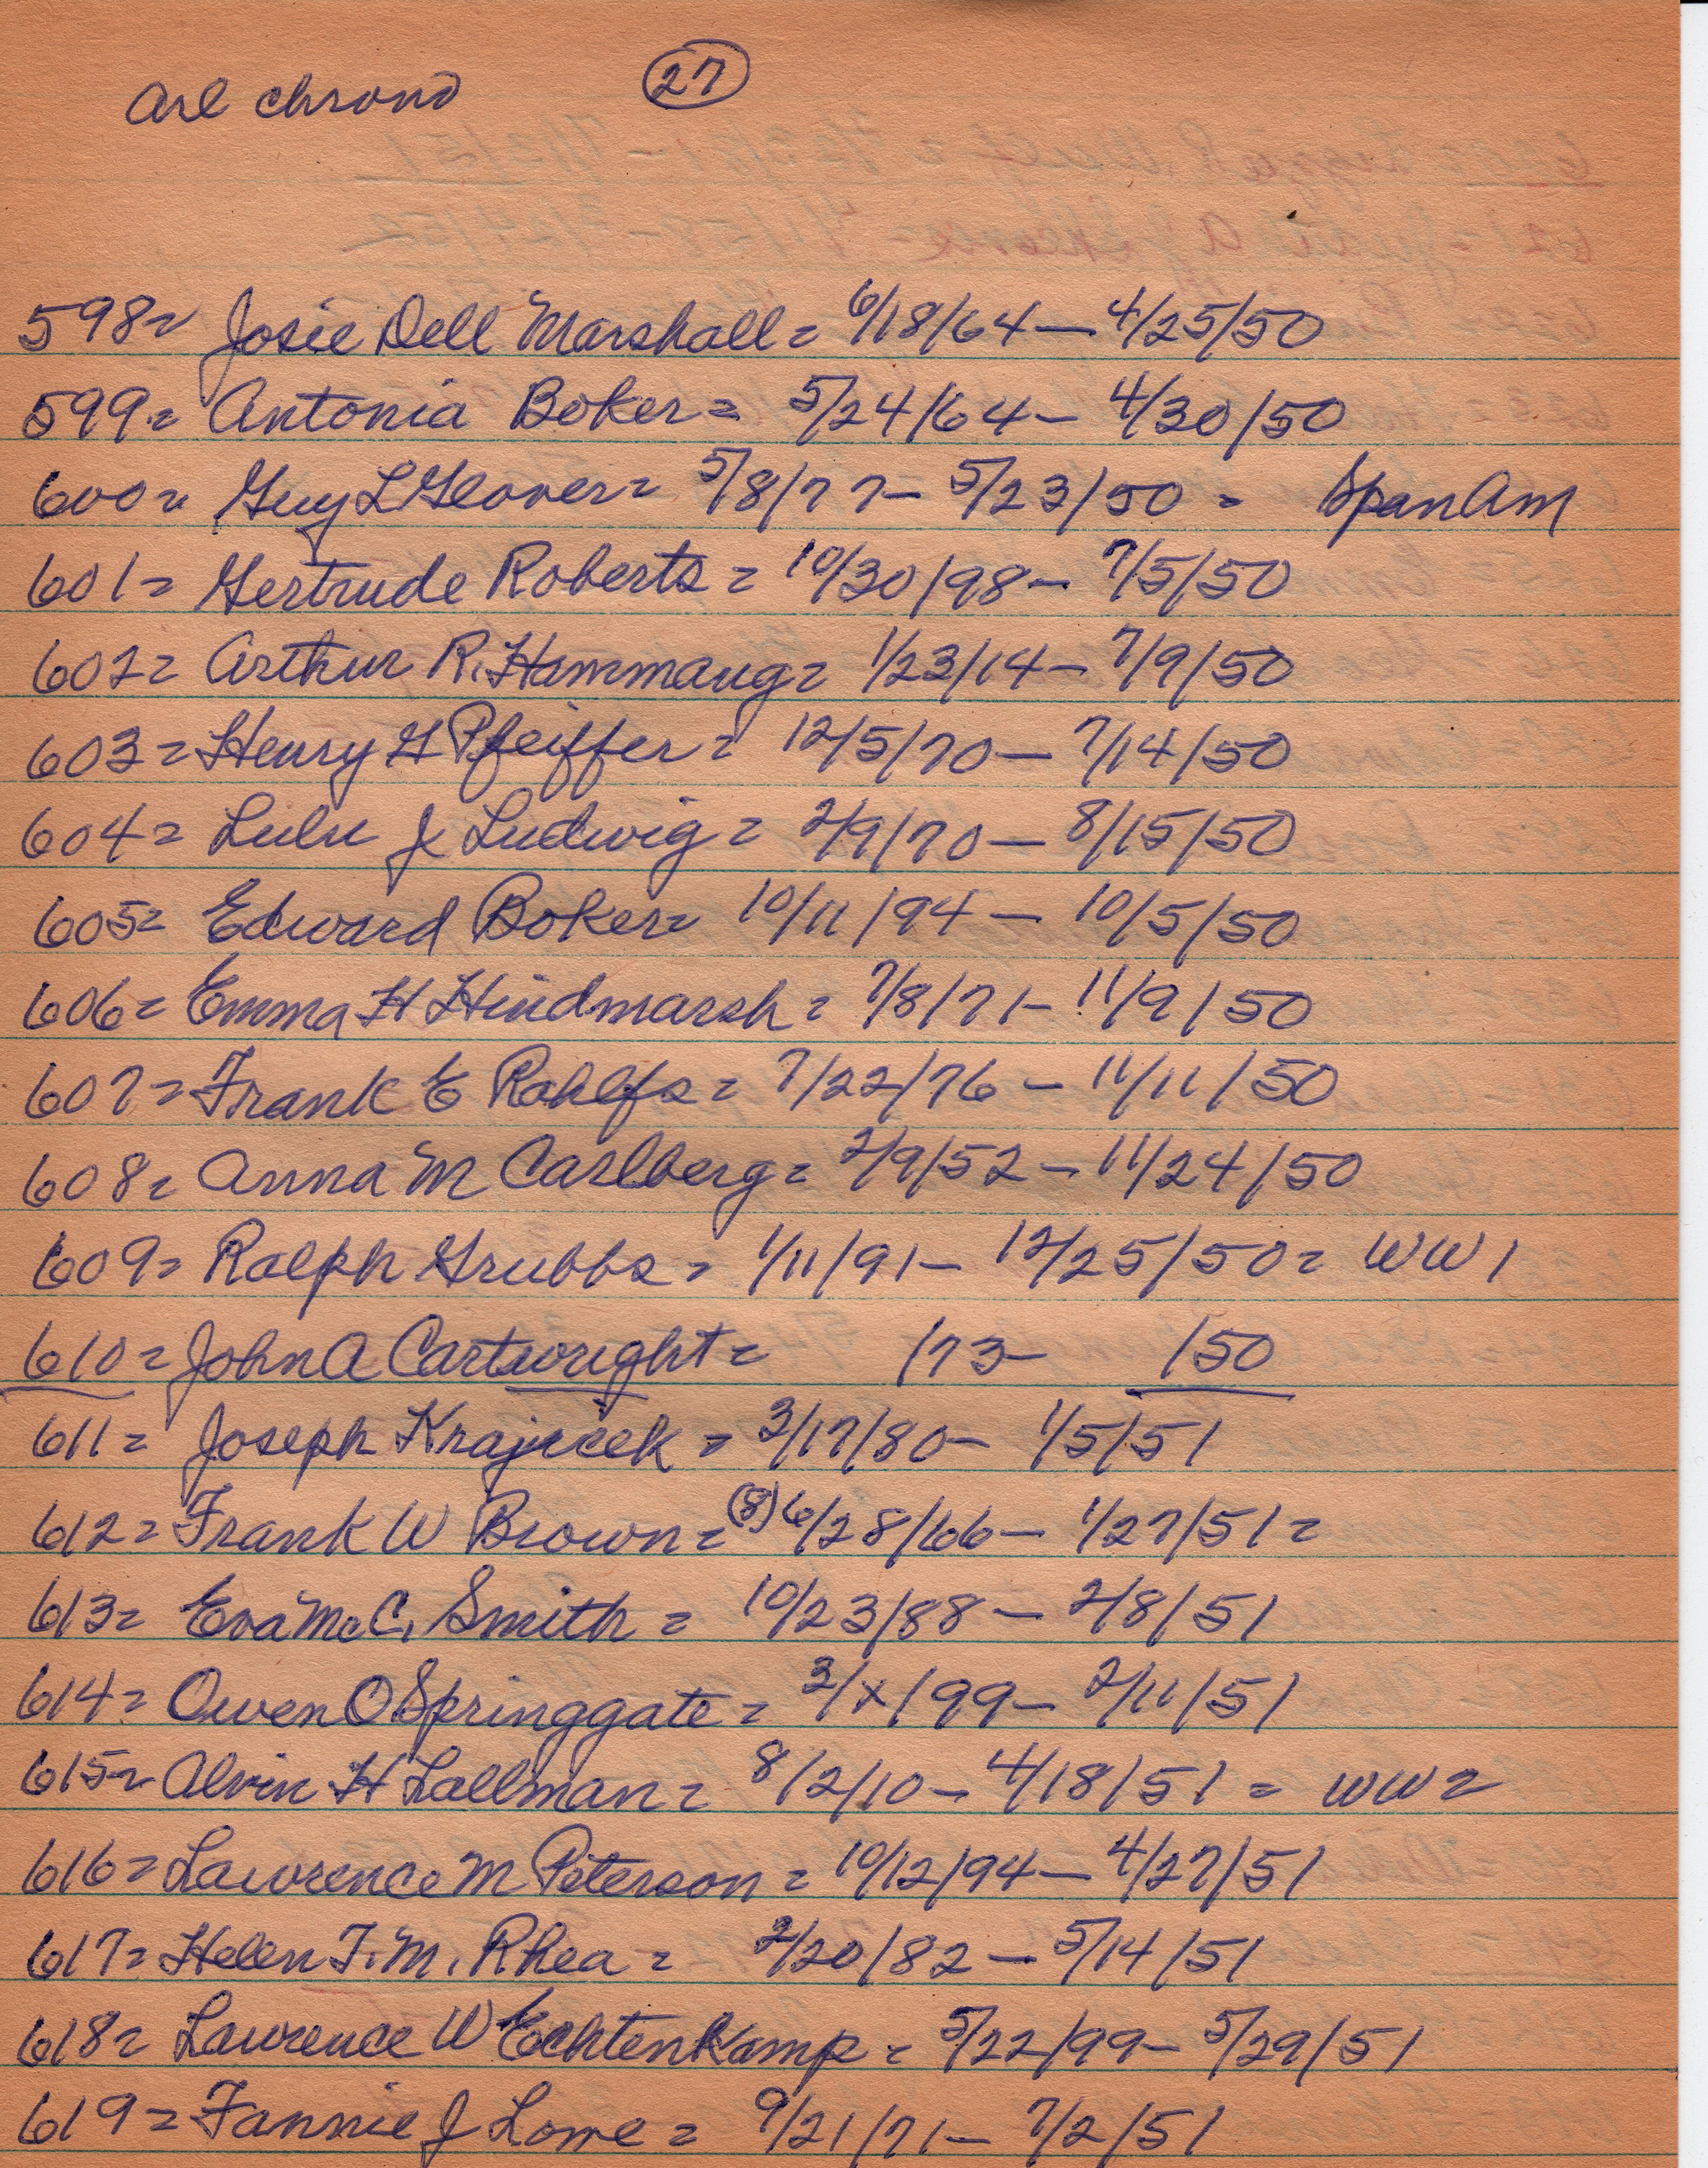 Arl chrono 27
598= Josie Dell Marshall= 6/18/64- 4/25/50
599= Antonia Boker= 5/24/64- 4/30/50
600= Guy L Glover= 5/8/77- 5/23/50= SpanAm
601= Gertrude Roberts= 10/30/98- 7/5/50
602= Arthur R. Hammang= 1/23/14- 7/9/50
603= Henry G Pfeiffer= 12/5/70- 7/14/50
604= Lulu J Ludwig= 2/9/70- 8/15/50
605= Edward Boker= 10/11/94- 10/5/50
606= Emma H Hindmarsh= 7/8/71- 11/9/50
607= Frank E Rohlfs= 7/22/76- 11/11/50
608= Anna M Carlberg= 2/9/52- 11/24/50
609= Ralph Grubbs= 1/11/91- 12/25/50= WW1
610= John A Cartwright= /73- /50
611= Joseph Krajicek= 3/17/80- 1/5/51
612= Frank W Brown= (8) 6/28/66- 1/27/51=
613= Eva McC. Smith= 10/23/88- 2/8/51
614= Owen O Springgate= 3/x/99- 2/11/51
615= Alvin H Lallman= 8/2/10- 4/18/51= WW2
616= Lawrence M Peterson= 10/12/94- 4/27/51
617= Helen F. M. Rhea= 2/20/82- 5/14/51
618= Lawrence W Echtenkamp= 5/22/99- 5/29/51
619= Fannie J Lowe= 9/21/71- 7/2/51